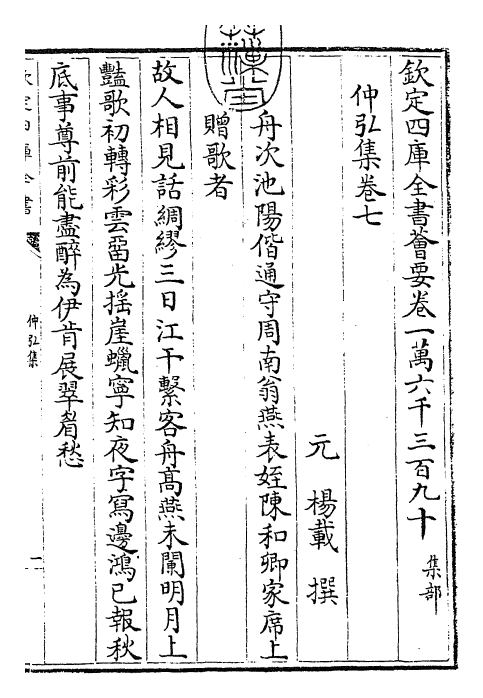 欽定四庫全書薈要卷一萬六千三百九十 集部
仲弘集卷七
元 楊載 撰
舟次池陽偕通守周南翁燕表姪陳和卿家席上
贈歌者
故人相見話綢繆三日江干繫客舟髙燕未闌明月上
豔歌初轉彩雲畱光摇崖蠟寧知夜字寫邊鴻已報秋
底事尊前能盡醉為伊肯展翠眉愁
欽定四庫全書
仲弘集
一